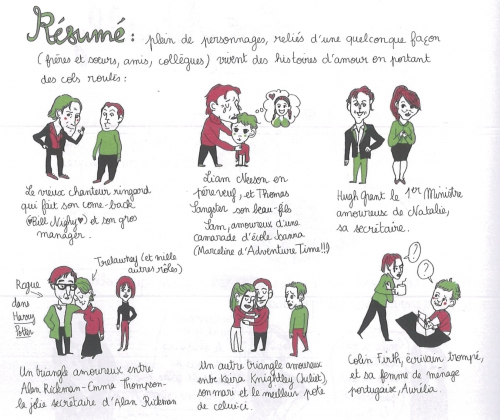 Résumé : plein de personnages, reliés d'une quelconque façon
(frères et sœurs, amis, collègues) vivent des histoires d'amour en portant
des cols roulés :
Le vieux chanteur ringard
qui fait son come-back
(♥Bill Nighy♥) et son gros
manager.
Liam Neeson en
père veuf, et Thomas
Sangster son beau-fils
Sam, amoureux d'une
camarade d'école Joanna
(Marceline d'Adventure Time!!!)
Hugh Grant le 1er Ministre
amoureux de Natalie,
sa secrétaire.
Rogue
dans
Harry
Potter
Trelawney (et mille
autres rôles)
Un triangle amoureux entre
Alan Rickman-Emma Thompson-
la jolie secrétaire d'Alan Rickman
Un autre triangle amoureux
entre Keira Knightley (Juliet),
son mari et le meilleur pote
de celui-ci.
?
?
Colin Firth, écrivain trompé,
et sa femme de ménage
portugaise, Aurélia.